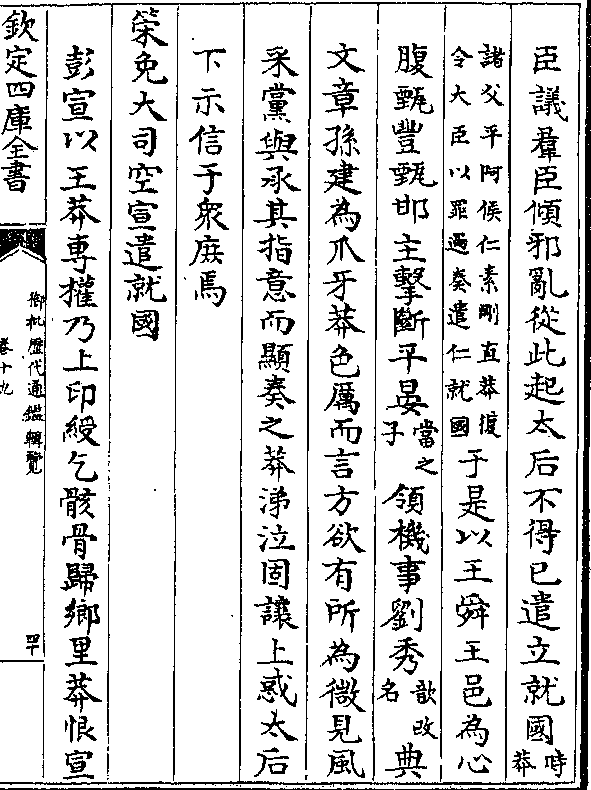 臣議羣臣傾邪亂從此起太后不得已遣立就國時莽
諸父平阿侯仁素剛直莽復令大臣以罪過奏遣仁就國于是以王舜王邑為心
腹甄豐甄邯主擊斷平晏當之子領機事劉秀歆改名典
文章孫建為爪牙莽色厲而言方欲有所為微見風
采黨與承其指意而顯奏之莽涕泣固讓上惑太后
下示信于衆庶焉
策免大司空宣遣就國
彭宣以王莽專權乃上印綬乞骸骨歸鄉里莽恨宣
欽定四庫全書
御批歷代通鑑輯覽
卷十九
四十